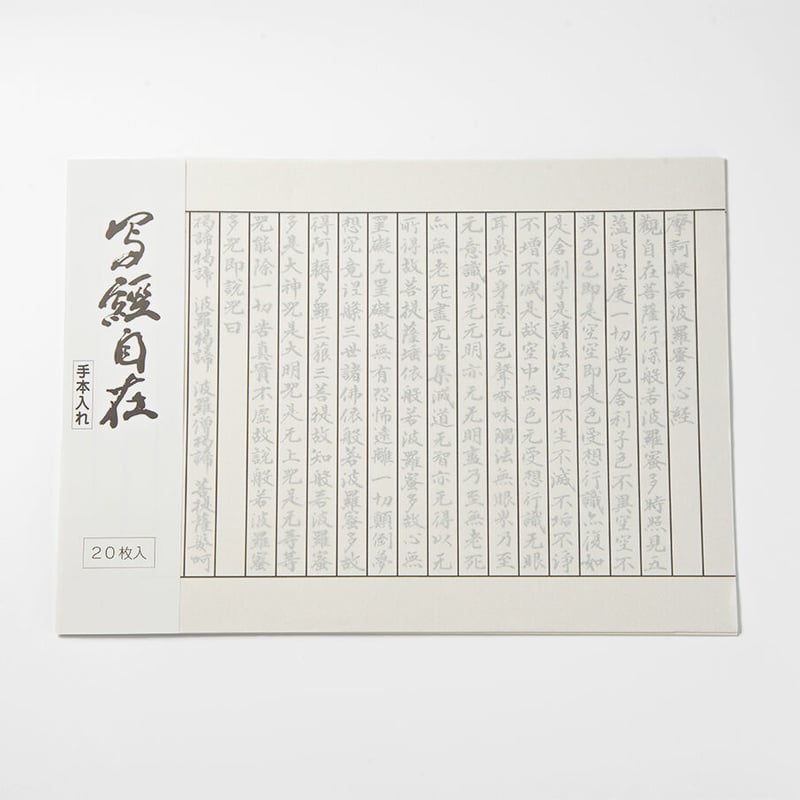 摩訶般若波羅蜜多心経
觀自在菩薩行深般若波羅蜜多時照見五
蘊皆空度一切苦厄舍利子色不異空空不
異色色即是空空即是色受想行識亦復如
是舍利子是諸法空相不生不滅不垢不浄
不増不減是故空中無色无受想行識无眼
耳鼻舌身意无色聲香味觸法無眼界乃至
无意識界无无明亦无无明盡乃至無老死
亦無老死盡无苦集滅道无智亦无得以无
所得故菩提薩埵依般若波羅蜜多故心無
罣礙无罣礙故無有恐怖遠離一切顛倒夢
想究竟涅槃三世諸佛依般若波羅蜜多故
得阿耨多羅三藐三菩提故知般若波羅蜜
多是大神咒是大明咒是无上咒是无等等
咒能除一切苦真實不虚故説般若波羅蜜
多咒即説咒曰
揭諦揭諦 波羅揭諦 波羅僧揭諦 菩提薩婆呵
写經自在
手本入れ
20枚入